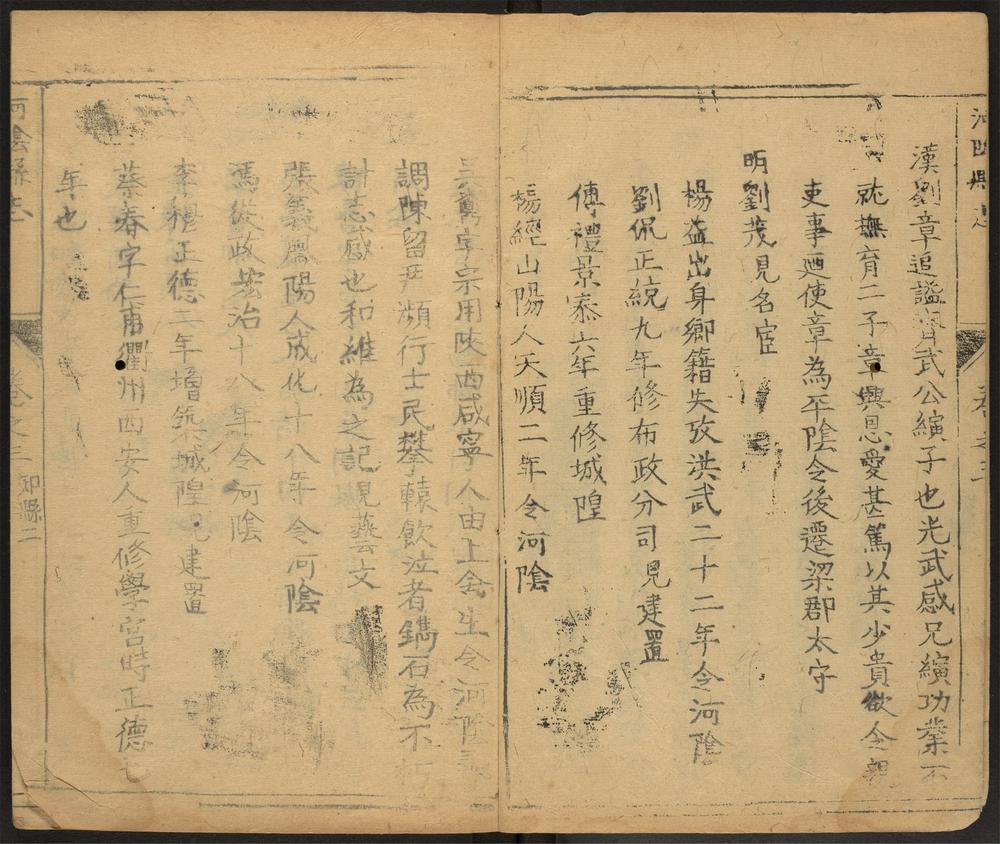 河陰縣志
卷之三
漢劉章追謚齊武公縯子也光武感兄縯功業不
就撫育二子章興恩愛甚篤以其少貴欲令親
吏事廼使章為平陰令後遷梁郡太守
明劉茂見名宦
楊益出身鄉籍失攷洪武二十二年令河陰
劉侃正統九年修布政分司見建置
傅禮景泰六年重修城隍
楊經山陽人天順二年令河陰
字宗用陝西咸寧人由上舍生令河陰
調陳留尹瀕行士民攀轅飲泣者鐫石為不朽
計志感也和維為之記見藝文
張義應陽人成化十八年令河陰
馮從政宏治十八年令河陰
李穆正德二年增築城隍見建置
蔡春字仁甫衢州西安人重修學宮時正德七
年也
河陰縣志
卷之三
知縣二